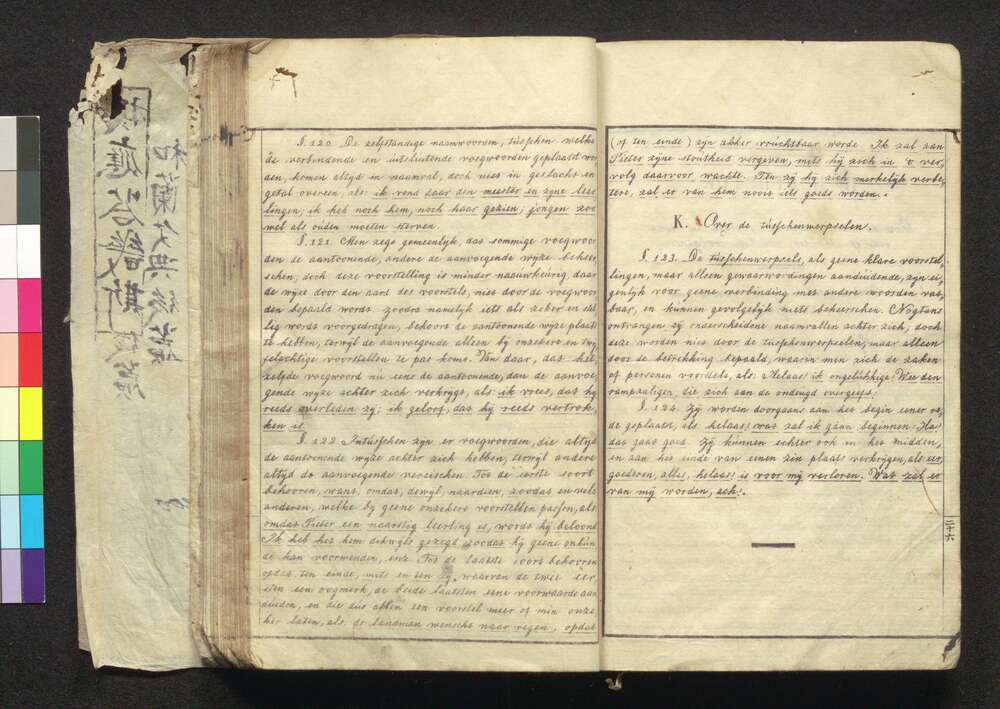 §. 120. De zelfstandige naamwoorden, tusschen welke
de verbindende en uitsluitende voegwoorden geplaatst wor
den, komen altyd in naamval, doch niet in geslacht en
getal overeen, als: ik vond daar den meester en zyne leer
lingen; ik heb noch hem, noch haar gezien; jongen zoo
wel als ouden moeten sterven.
§. 121. Men zegt gemeenelyk, dat sommige voegwoor
den de aantoonende, andere de aanvoegende wyze beheer
schen, doch deze voorstelling is minder naauwkeurig, daar
de wyze door den aard des voorstels, niet door de voegwoor
den bepaald wordt. zoodra namelyk iets als zeker en stel
lig wordt voorgedragen, behoort de aantoonende wyze plaats
te hebben, terwyl de aanvoegende alleen by onzekere en twy
felachtige voorstellen te pas komt. Van daar, dat het
zelfde voegwoord nu eens de aantoonende, dan de aanvoe
gende wyze achter zich verkrygt, als: ik vrees, dat hy
reeds overleden zy; ik geloof, dat hy reeds vertrok
ken is.
§. 122. Intusschen zyn er voegwoorden, die altyd
de aantoonende wyze achter zich hebben, terwyl andere
altyd de aanvoegende vereischen. Tot de eerste soort
behooren, want, omdat, dewyl, naardien, zoodat en vele
anderen, welke by geene onzekere voorstellen passen, als
omdat Pieter een naarstig leerling is, wordt hy beloond
Ik heb het hem dikwyls gezegd zoodat hy geene onkun
de kan voorwenden, enz. Tot de laatste soort behooren
opdat, ten einde, mits en ten zy, waarvan de twee eer
sten een oogmerk, de beide laatsten eene voorwaarde aan
duiden, en die dus allen een voorstel meer of min onze
ker laten, als: de landman wenscht naar regen, opdat
(of ten einde) zyn akker vruchtbaar worde. Ik zal aan
Pieter zyne stoutheid vergeven, mits hy zich in 't ver,
volg daarvoor wachte. Ten zy hy zich merkelyk verbe,
tere, zal er van hem nooit iets goeds worden.
K. Over de tusschenwerpselen.
§. 123. De tusschenwerpsels, als geene klare voorstel,
lingen, maar alleen gewaarwordingen aanduidende, zyn ei,
genlyk voor geene verbinding met andere woorden vat,
baar, en kunnen gevolgelyk niets beheerschen. Nogtans
ontvangen zy onderscheidene naamvallen achter zich, doch
deze worden niet door de tusschenwerpselen, maar alleen
door de betrekking bepaald, waarin men zich de zaken
of personen voorstelt, als: Helaas! ik ongelukkige! Wee den
rampzaligen, die zich aan de ondeugd overgeeft!
§. 124. Zy worden doorgaans aan het begin eener re,
de geplaatst, als: helaas! wat zal ik gaan beginnen! Ha!
dat gaat goed. Zy kunnen echter ook in het midden,
en aan het einde van eenen zin plaats verkrygen, als: eer,
goederen, alles, helaas! is voor my verloren. Wat zal er
van my worden, ach!
二十六